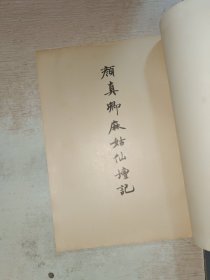 顏真卿麻姑仙壇記